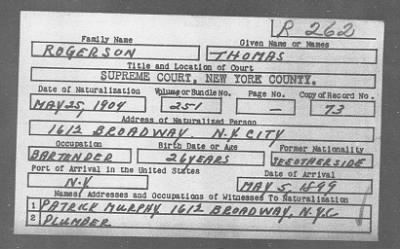 R 262
Family Name Given Name or Names
ROGERSON THOMAS
Title and Location of Court
SUPREME COURT, NEW YORK COUNTY.
Date of Naturalization Volume or Bundle No. Page No. Copy of Record No.
MAY 25, 1904 251 — 73
Address of Naturalized Person
1612 BROADWAY. N.Y CITY
Occupation Birth Date or Age Former Nationality
BARTENDER 26 YEARS SEEOTHERSIDE
Port of Arrival in the United States Date of Arrival
N.Y MAY 5, 1899
Names, Addresses and Occupations of Witnesses To Naturalization
1 PATRICK MURPHY 1612 BROADWAY, N.Y.C
2 PLUMBER